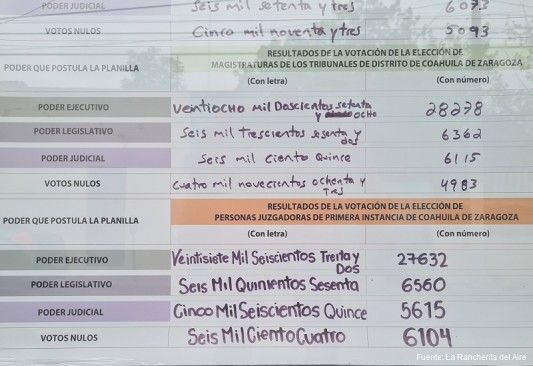 PODER JUDICIAL Seis mil setenta y tres 6073
VOTOS NULOS Cinco mil noventa y tres 5093
PODER QUE POSTULA LA PLANILLA
RESULTADOS DE LA VOTACIÓN DE LA ELECCIÓN DE
MAGISTRATURAS DE LOS TRIBUNALES DE DISTRITO DE COAHUILA DE ZARAGOZA
(Con letra) (Con número)
PODER EJECUTIVO Veintiocho mil Doscientos setenta 28278
y ocho
PODER LEGISLATIVO Seis mil Trescientos sesenta y 6362
dos
PODER JUDICIAL Seis mil Ciento Quince 6115
VOTOS NULOS Cuatro mil novecientos ochenta y 4983
Tres
PODER QUE POSTULA LA PLANILLA
RESULTADOS DE LA VOTACIÓN DE LA ELECCIÓN DE
PERSONAS JUZGADORAS DE PRIMERA INSTANCIA DE COAHUILA DE ZARAGOZA
(Con letra) (Con número)
PODER EJECUTIVO Veintisiete Mil Seiscientos Treita y 27632
Dos
PODER LEGISLATIVO Seis Mil Quinientos Sesenta 6560
PODER JUDICIAL Cinco Mil Seiscientos Quince 5615
VOTOS NULOS Seis Mil Ciento Cuatro 6104
Fuente: La Rancherita del Aire